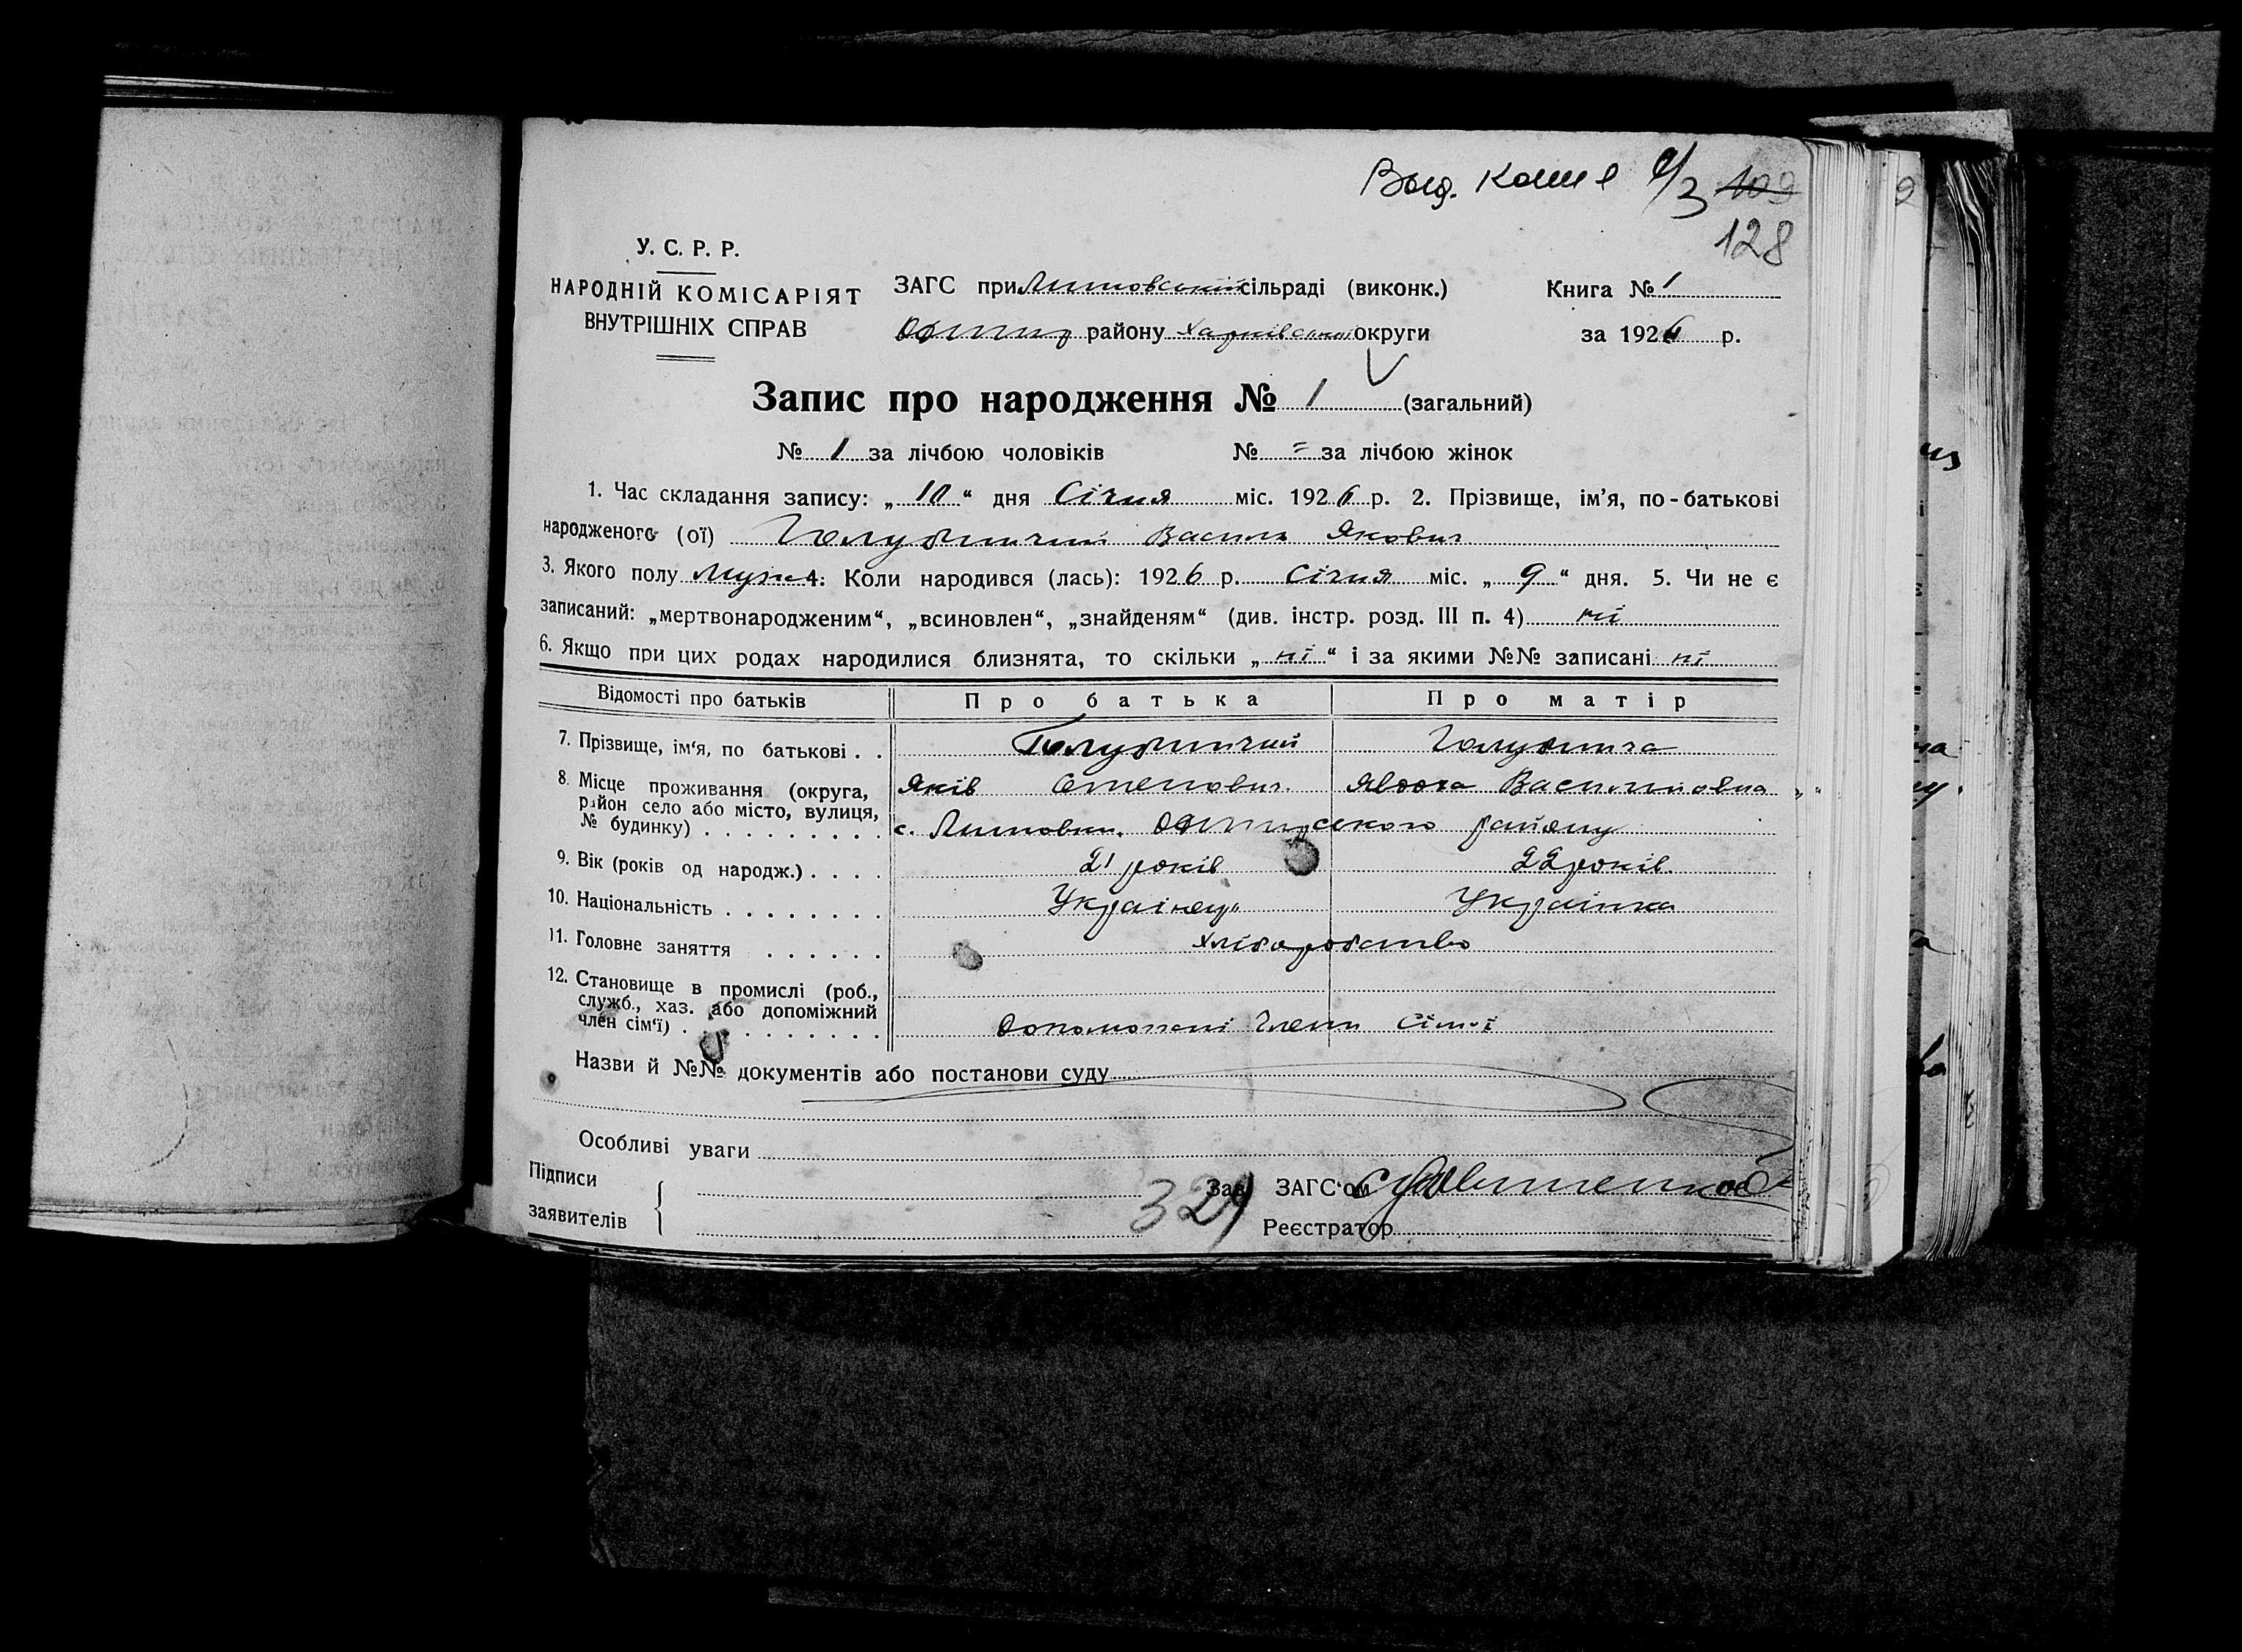 Выд. копия
109
128
У. С. Р. Р.
НАРОДНІЙ КОМІСАРІЯТ
ВНУТРІШНІХ СПРАВ
ЗАГС при Литовській сільраді (виконк.)
району Харківської округи
Книга № 1
за 1926 р.
Запис про народження № 1 (загальний)
№ 1 за лічбою чоловіків № = за лічбою жінок
1. Час складання запису: „10“ дня Січня міс. 1926 р. 2. Прізвище, ім’я, по-батькові
народженого (ої) Голубничий Василь Якович
3. Якого полу Мужч. 4. Коли народився (лась): 1926 р. Січня міс. „9“ дня. 5. Чи не є
записаний: „мертвонародженим“, „всиновлен“, „знайденям“ (див. інстр. розд. III п. 4) ні
6. Якщо при цих родах народилися близнята, то скільки „ні“ і за якими №№ записані ні
Відомості про батьків Про батька Про матір
7. Прізвище, ім‘я, по батькові . . Голубничий Голубнича
8. Місце проживання (округа, Яків Степович Явдоха Василивна
район село або місто, вулиця,
№ будинку) . . . . . . . . . с. Литовки, району
9. Вік (років од народж.) . . . . 21 років 22 років.
10. Національність . . . . . . . . Українець Українка
11. Головне заняття . . . . . . Хліборобство
12. Становище в промислі (роб.,
служб., хаз. або допоміжний
член сім‘ї) . . . . . . . . . Допоможні члени сім'ї
Назви й №№ документів або постанови суду
Особливі уваги
Підписи
заявителів
324
Зав. ЗАГС‘ом
Реєстратор